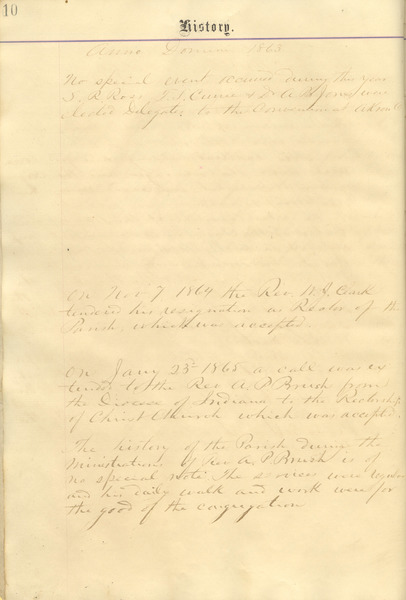 10
History.
Anno Domini 1863
No special event occured during this year
S. R. Ross were
elected Delegates to the Convention at
On Nov 7 1864 the Rev. W. J. Clark
tendered his resignation as Rector of the
Parish, which was accepted.
On Jany 23rd 1865 a call was ex
tended to the Rev A P Brush from
the Diocese of Indiana to the Rectorship
of Christ Church which was accepted.
The history of the Parish during the
Ministrations of Rev A. P. Brush is of
no special note. The services were
and his daily walk and work were for
the good of the congregation